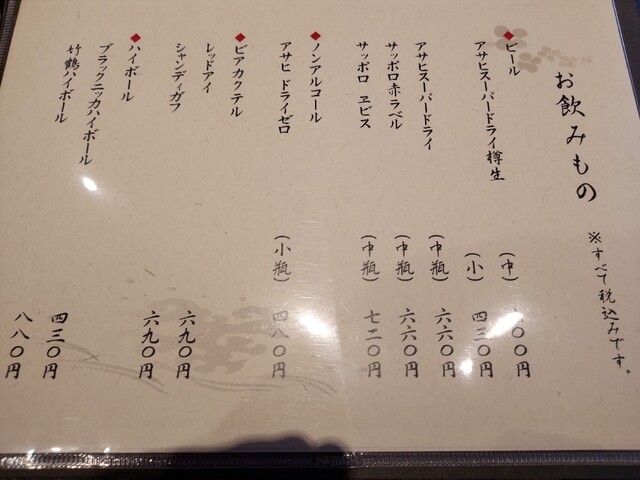 お飲みもの
※すべて税込みです。
◆ビール
アサヒスーパードライ樽生
（中）
〇〇円
（小） 四三〇円
アサヒスーパードライ （中瓶） 六六〇円
サッポロ赤ラベル （中瓶） 六六〇円
サッポロ ヱビス （中瓶） 七二〇円
◆ノンアルコール
アサヒ ドライゼロ （小瓶） 四八〇円
◆ビアカクテル
レッドアイ 六九〇円
シャンディガフ 六九〇円
◆ハイボール
ブラックニッカハイボール 四三〇円
竹鶴ハイボール 八八〇円